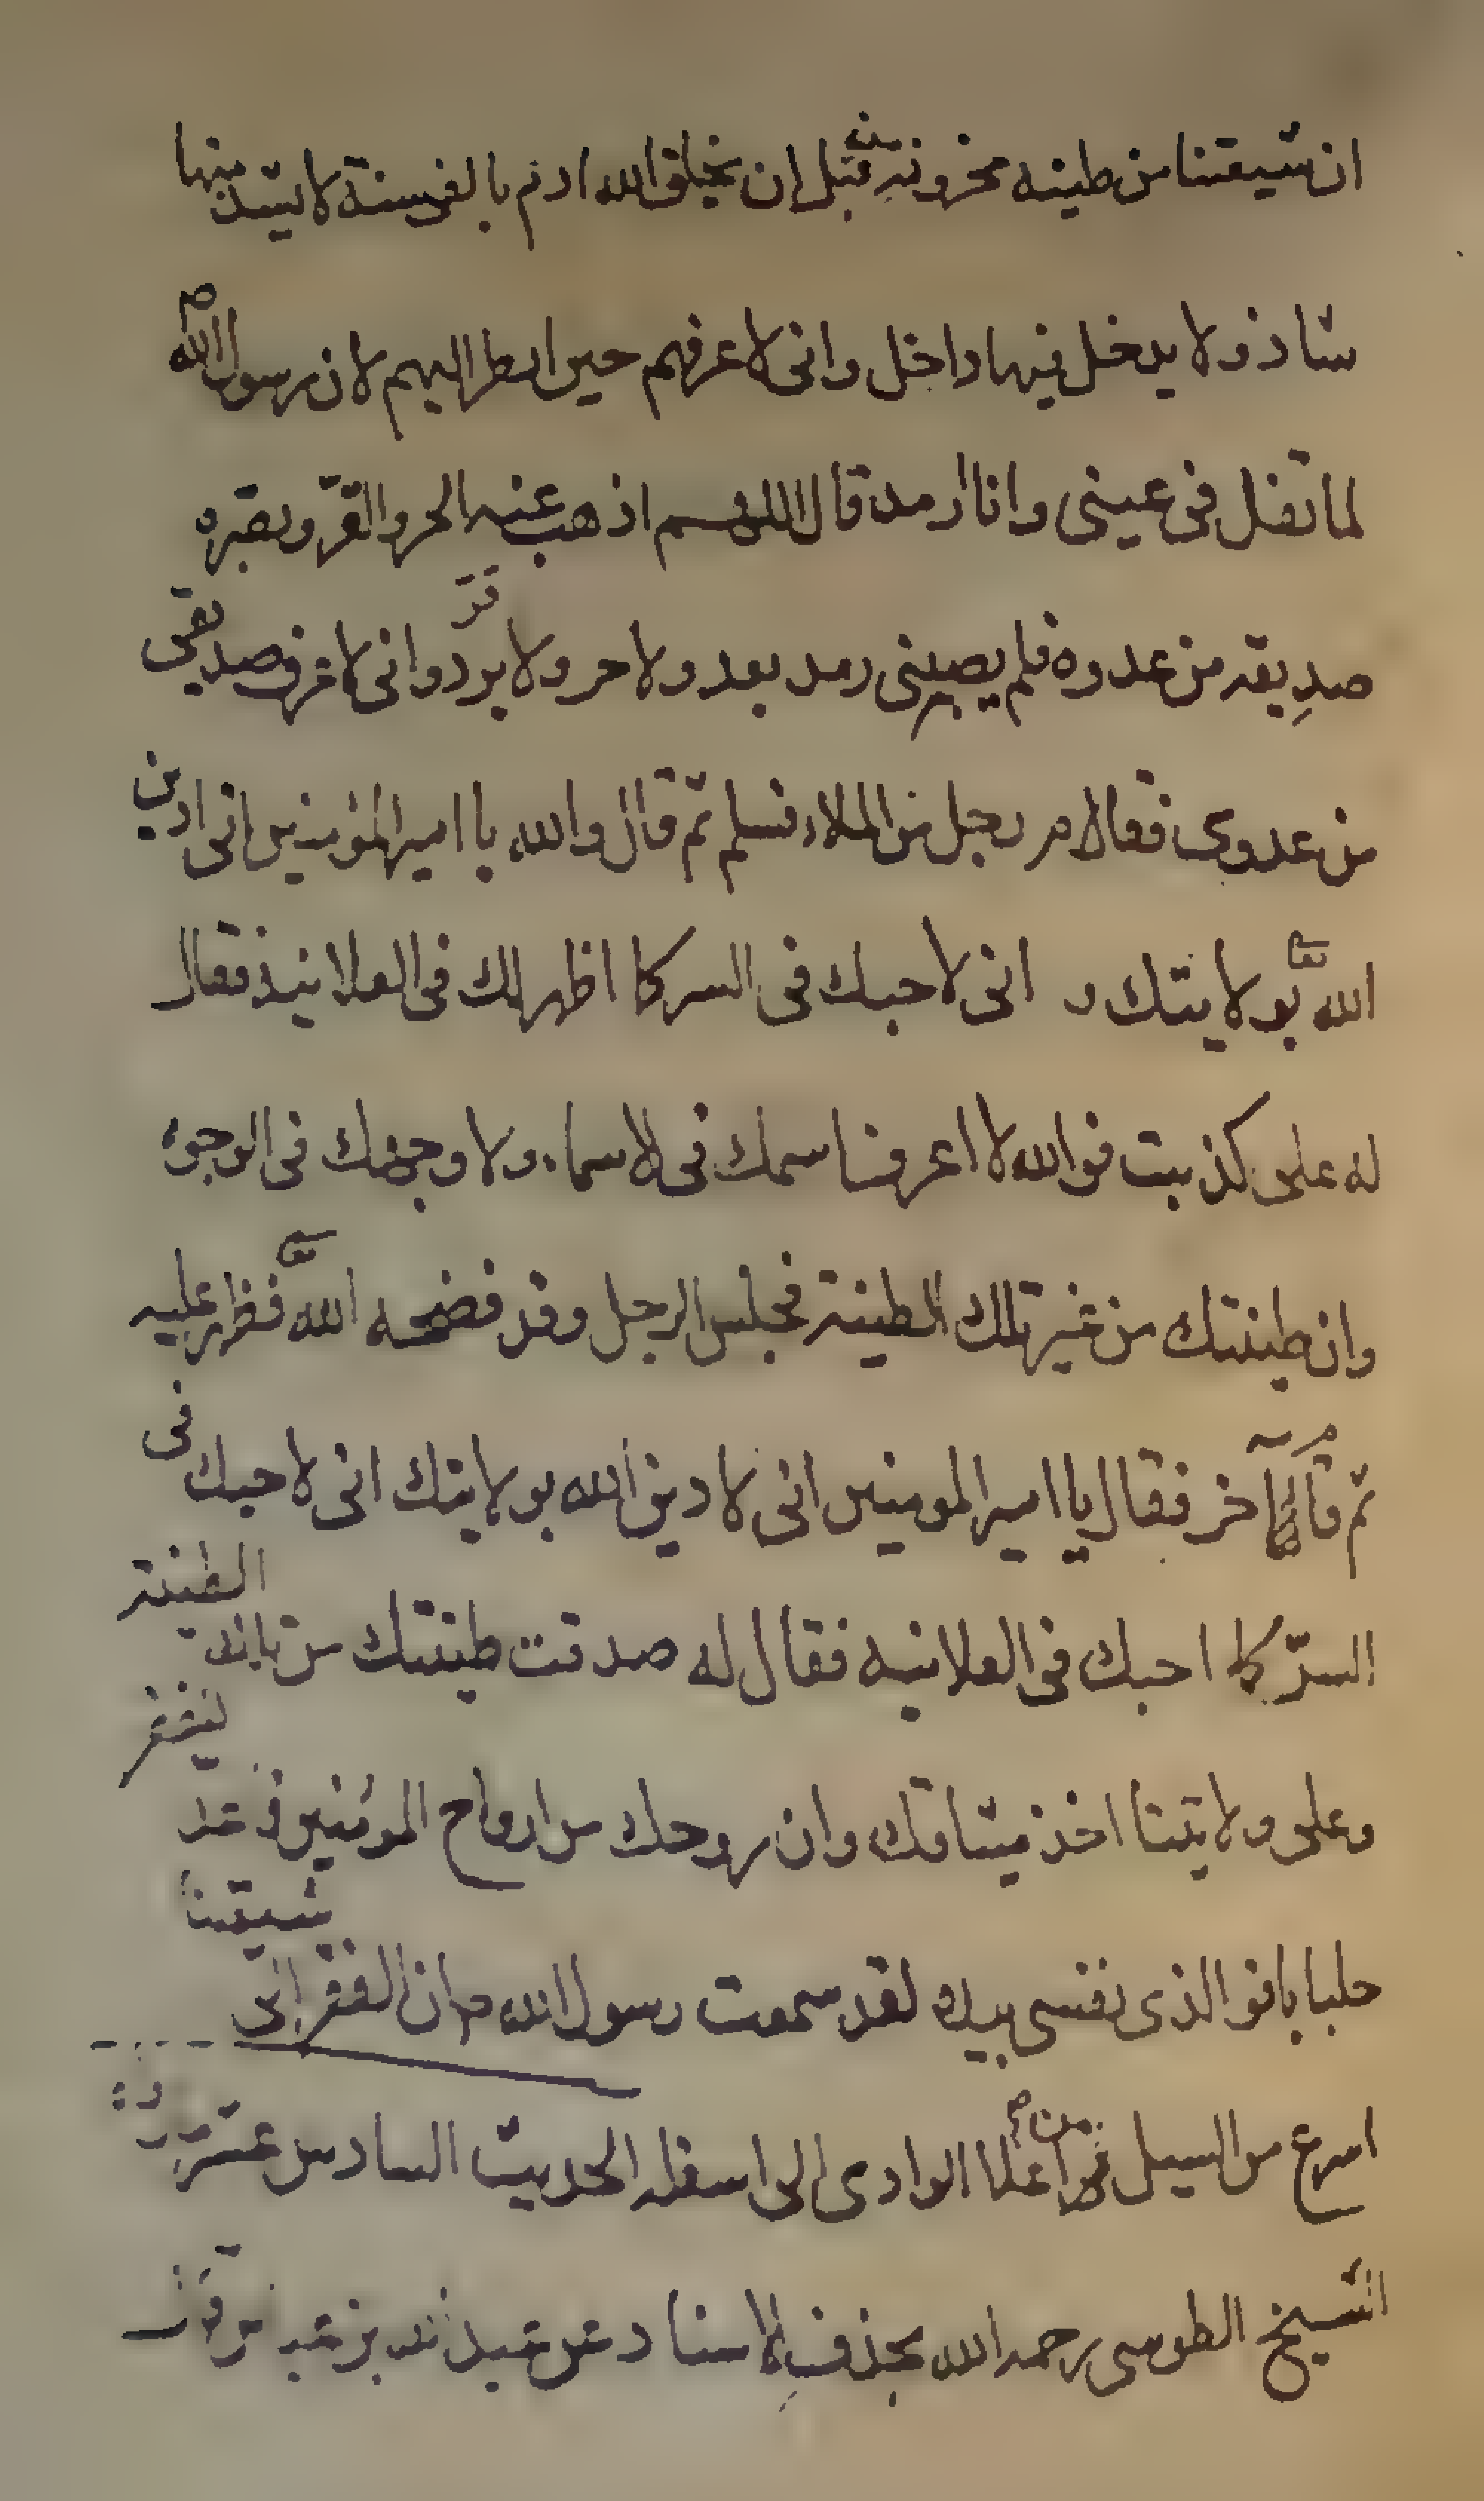 ان شيعتنا من طينه مخزونة من قبل ان يخلق الله ادم بالفي سنة لا يشد منها
شاذ ولا يدخل فيها داخل وانى لاعرفهم حين انظر اليهم لان رسول الله ص
لما تفل فى عينى وانا ارمد قال اللهم اذهب عنه الحر والقرّ وبصره
صديقه من عدوه فلم يصيبنى رمد بعد ولا حر ولا برد قرّ وانى لاعرف صديقى
من عدوى فقام رجل من الملاء فسلم ثم قال والله يا امير المؤمنين انى ادين
الله بولايتك و انى لاحبك فى السر كما اظهر لك فى العلانية فقال
له على كذبت فوالله لا اعرف اسمك فى الاسماء ولا وجهك فى الوجوه
وان طينتك من غير تلك الطينة فجلس الرجل وقد فضحه الله فظهر عليه
ثم قام آخر فقال يا امير المومنين انى لادين الله بولايتك انى لاحبك فى
السرّ كما احبك فى العلانيه فقال له صدقت طينتك من تلك الطينة
وعلى ولايتنا اخذ ميثاقك وان روحك من ارواح المؤمنين فاتخذ للفقر
جلبابا فو الذى نفسى بيده لقد سمعت رسول الله ص ان الفقر الى شيعتنا
اسرع من السيل من اعلا الوادى الى اسفله الحديث السادس عشر
الشيخ الطوسى رحمه الله بحذف الاسناد عن عبد الله بن